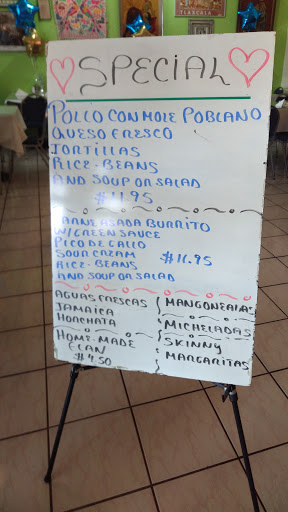 SPECIAL
POLLO CON MOLE POBLANO
QUESO FRESCO
TORTILLAS
RICE - BEANS
AND SOUP OR SALAD
$11.95
CARNE ASADA BURRITO
W/GREEN SAUCE
PICO DE GALLO
SOUR CREAM $11.95
RICE - BEANS
AND SOUP OR SALAD
AGUAS FRESCAS
JAMAICA
HORCHATA
HOME-MADE
FLAN
$4.50
MANGONEADAS
MICHELADAS
SKINNY
MARGARITAS
TLAXCALA